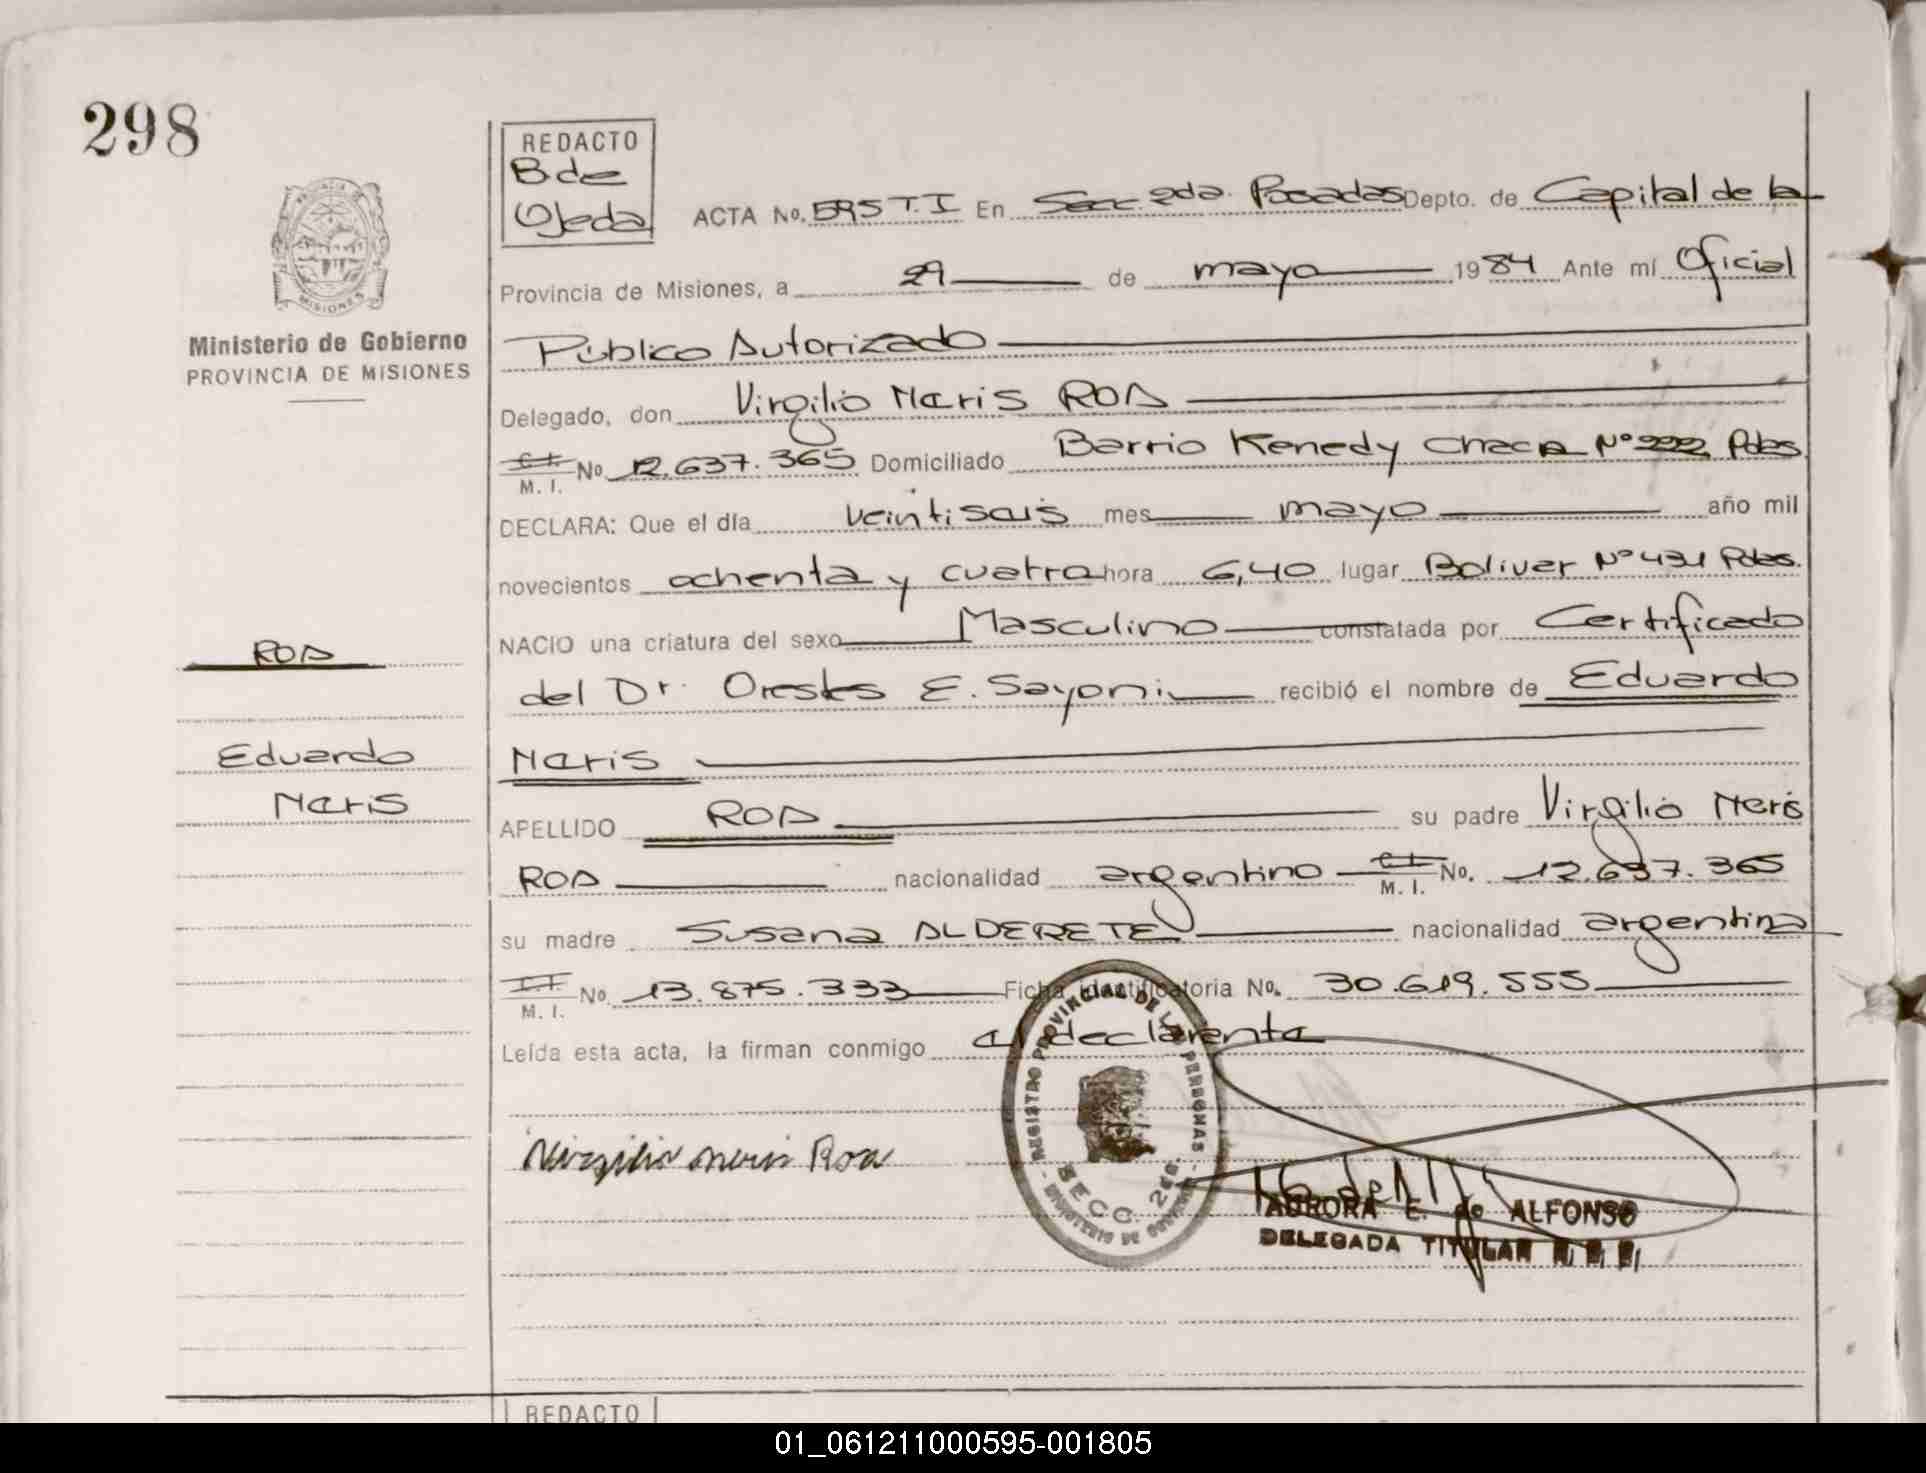 298
REDACTO
B. de
Ojeda
ACTA No. 595 T. I En Secc. 2da. Posadas Depto. de Capital de la
PROVINCIA DE MISIONES
Provincia de Misiones, a 29 de mayo 1984 Ante mí Oficial
Ministerio de Gobierno
PROVINCIA DE MISIONES
Público Autorizado
Delegado, don Virgilio Neris ROA
C.I. M. I. No 12.637.365 Domiciliado Barrio Kenedy Chacra Nº 222 Pdas.
DECLARA: Que el día veintiseis mes mayo año mil
novecientos ochenta y cuatro hora 6,40 lugar Bolivar Nº 431 Pdas.
NACIO una criatura del sexo Masculino constatada por Certificado
ROA
del Dr. Orestes E. Sayoni recibió el nombre de Eduardo
Eduardo
Neris
Neris
APELLIDO ROA su padre Virgilio Neris
ROA nacionalidad argentino C.I. M. I. No. 12.637.365
su madre Susana ALDERETE nacionalidad argentina
M. I. No. 13.875.333 Ficha Identificatoria No. 30.619.555
Leída esta acta, la firman conmigo el declarante
REGISTRO PROVINCIAL DE LAS PERSONAS
SECC. 2da.
MINISTERIO DE GOBIERNO
Virgilio neris Roa
AURORA E. de ALFONSO
DELEGADA TITULAR
REDACTO
01_061211000595-001805